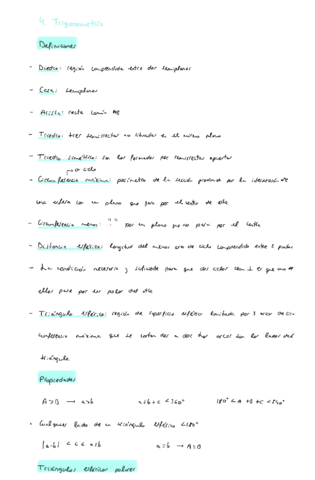 4. Trigonometría
Definiciones
- Diedro: región comprendida entre dos semiplanos
- Cara: semiplano
- Arista: recta común AB
- Triedro: tres semirrectas no situadas en el mismo plano
- Triedro simétrico: son los formados por semirrectas opuestas
→ o ciclo
- Circunferencia máxima: perímetro de la sección producida por la intersección de
una esfera con un plano que pasa por el centro de esta
- Circunferencia menor: " " por un plano que no pasa por el centro
- Distancia esférica: longitud del menor arco de ciclo comprendido entre 2 puntos
- La condición necesaria y suficiente para que dos ciclos sean ⊥ es que uno de
ellos pase por los polos del otro
- Triángulo esférico: región de superficie esférica limitada por 3 arcos de cir
cunferencia máxima que se cortan dos a dos los arcos son los lados del
triángulo
Propiedades
A>B → a>b a+b+c < 360° 180° < A + B + C < 540°
- Cualquier lado de un triángulo esférico < 180°
|a-b| < c < a+b a=b → A=B
Triángulos esféricos polares